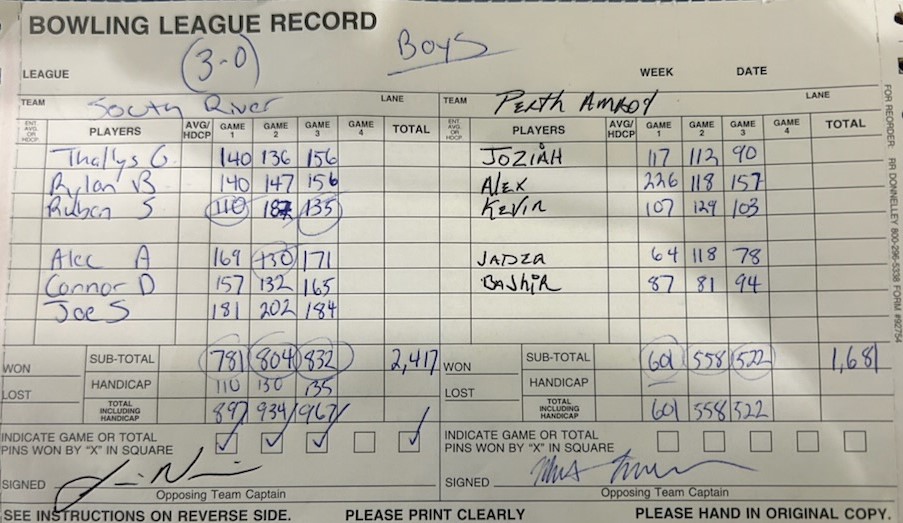 BOWLING LEAGUE RECORD
(3-0) Boys
LEAGUE WEEK DATE
TEAM South River LANE TEAM Perth Amboy LANE
ENT. AVG. OR HDCP. PLAYERS AVG/HDCP GAME 1 GAME 2 GAME 3 GAME 4 TOTAL ENT. AVG. OR HDCP. PLAYERS AVG/HDCP GAME 1 GAME 2 GAME 3 GAME 4 TOTAL
Thallys G. 140 136 156 JOZIAH 117 112 90
Rylan B 140 147 156 ALEX 226 118 157
Ruben S 110 187 135 KEVIN 107 129 103
Alec A 169 130 171 JADZA 64 118 78
Connor D 157 132 165 BASHIR 87 81 94
Joe S 181 202 184
WON SUB-TOTAL 781 804 832 2,417 WON SUB-TOTAL 601 558 522 1,681
LOST HANDICAP 110 130 135 LOST HANDICAP
TOTAL INCLUDING HANDICAP 897 934 967 TOTAL INCLUDING HANDICAP 601 558 522
INDICATE GAME OR TOTAL PINS WON BY "X" IN SQUARE INDICATE GAME OR TOTAL PINS WON BY "X" IN SQUARE
SIGNED SIGNED
Opposing Team Captain Opposing Team Captain
SEE INSTRUCTIONS ON REVERSE SIDE. PLEASE PRINT CLEARLY PLEASE HAND IN ORIGINAL COPY.
FOR REORDER: RR DONNELLEY 800-296-5338 FORM #92754